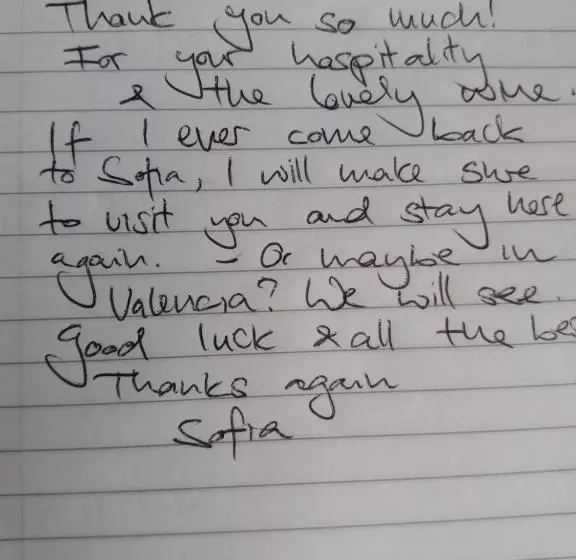 Thank you so much!
For your hospitality
& the lovely wine.
If I ever come back
to Sofia, I will make sure
to visit you and stay here
again. - Or maybe in
Valencia? We will see.
Good luck & all the bes
Thanks again
Sofia